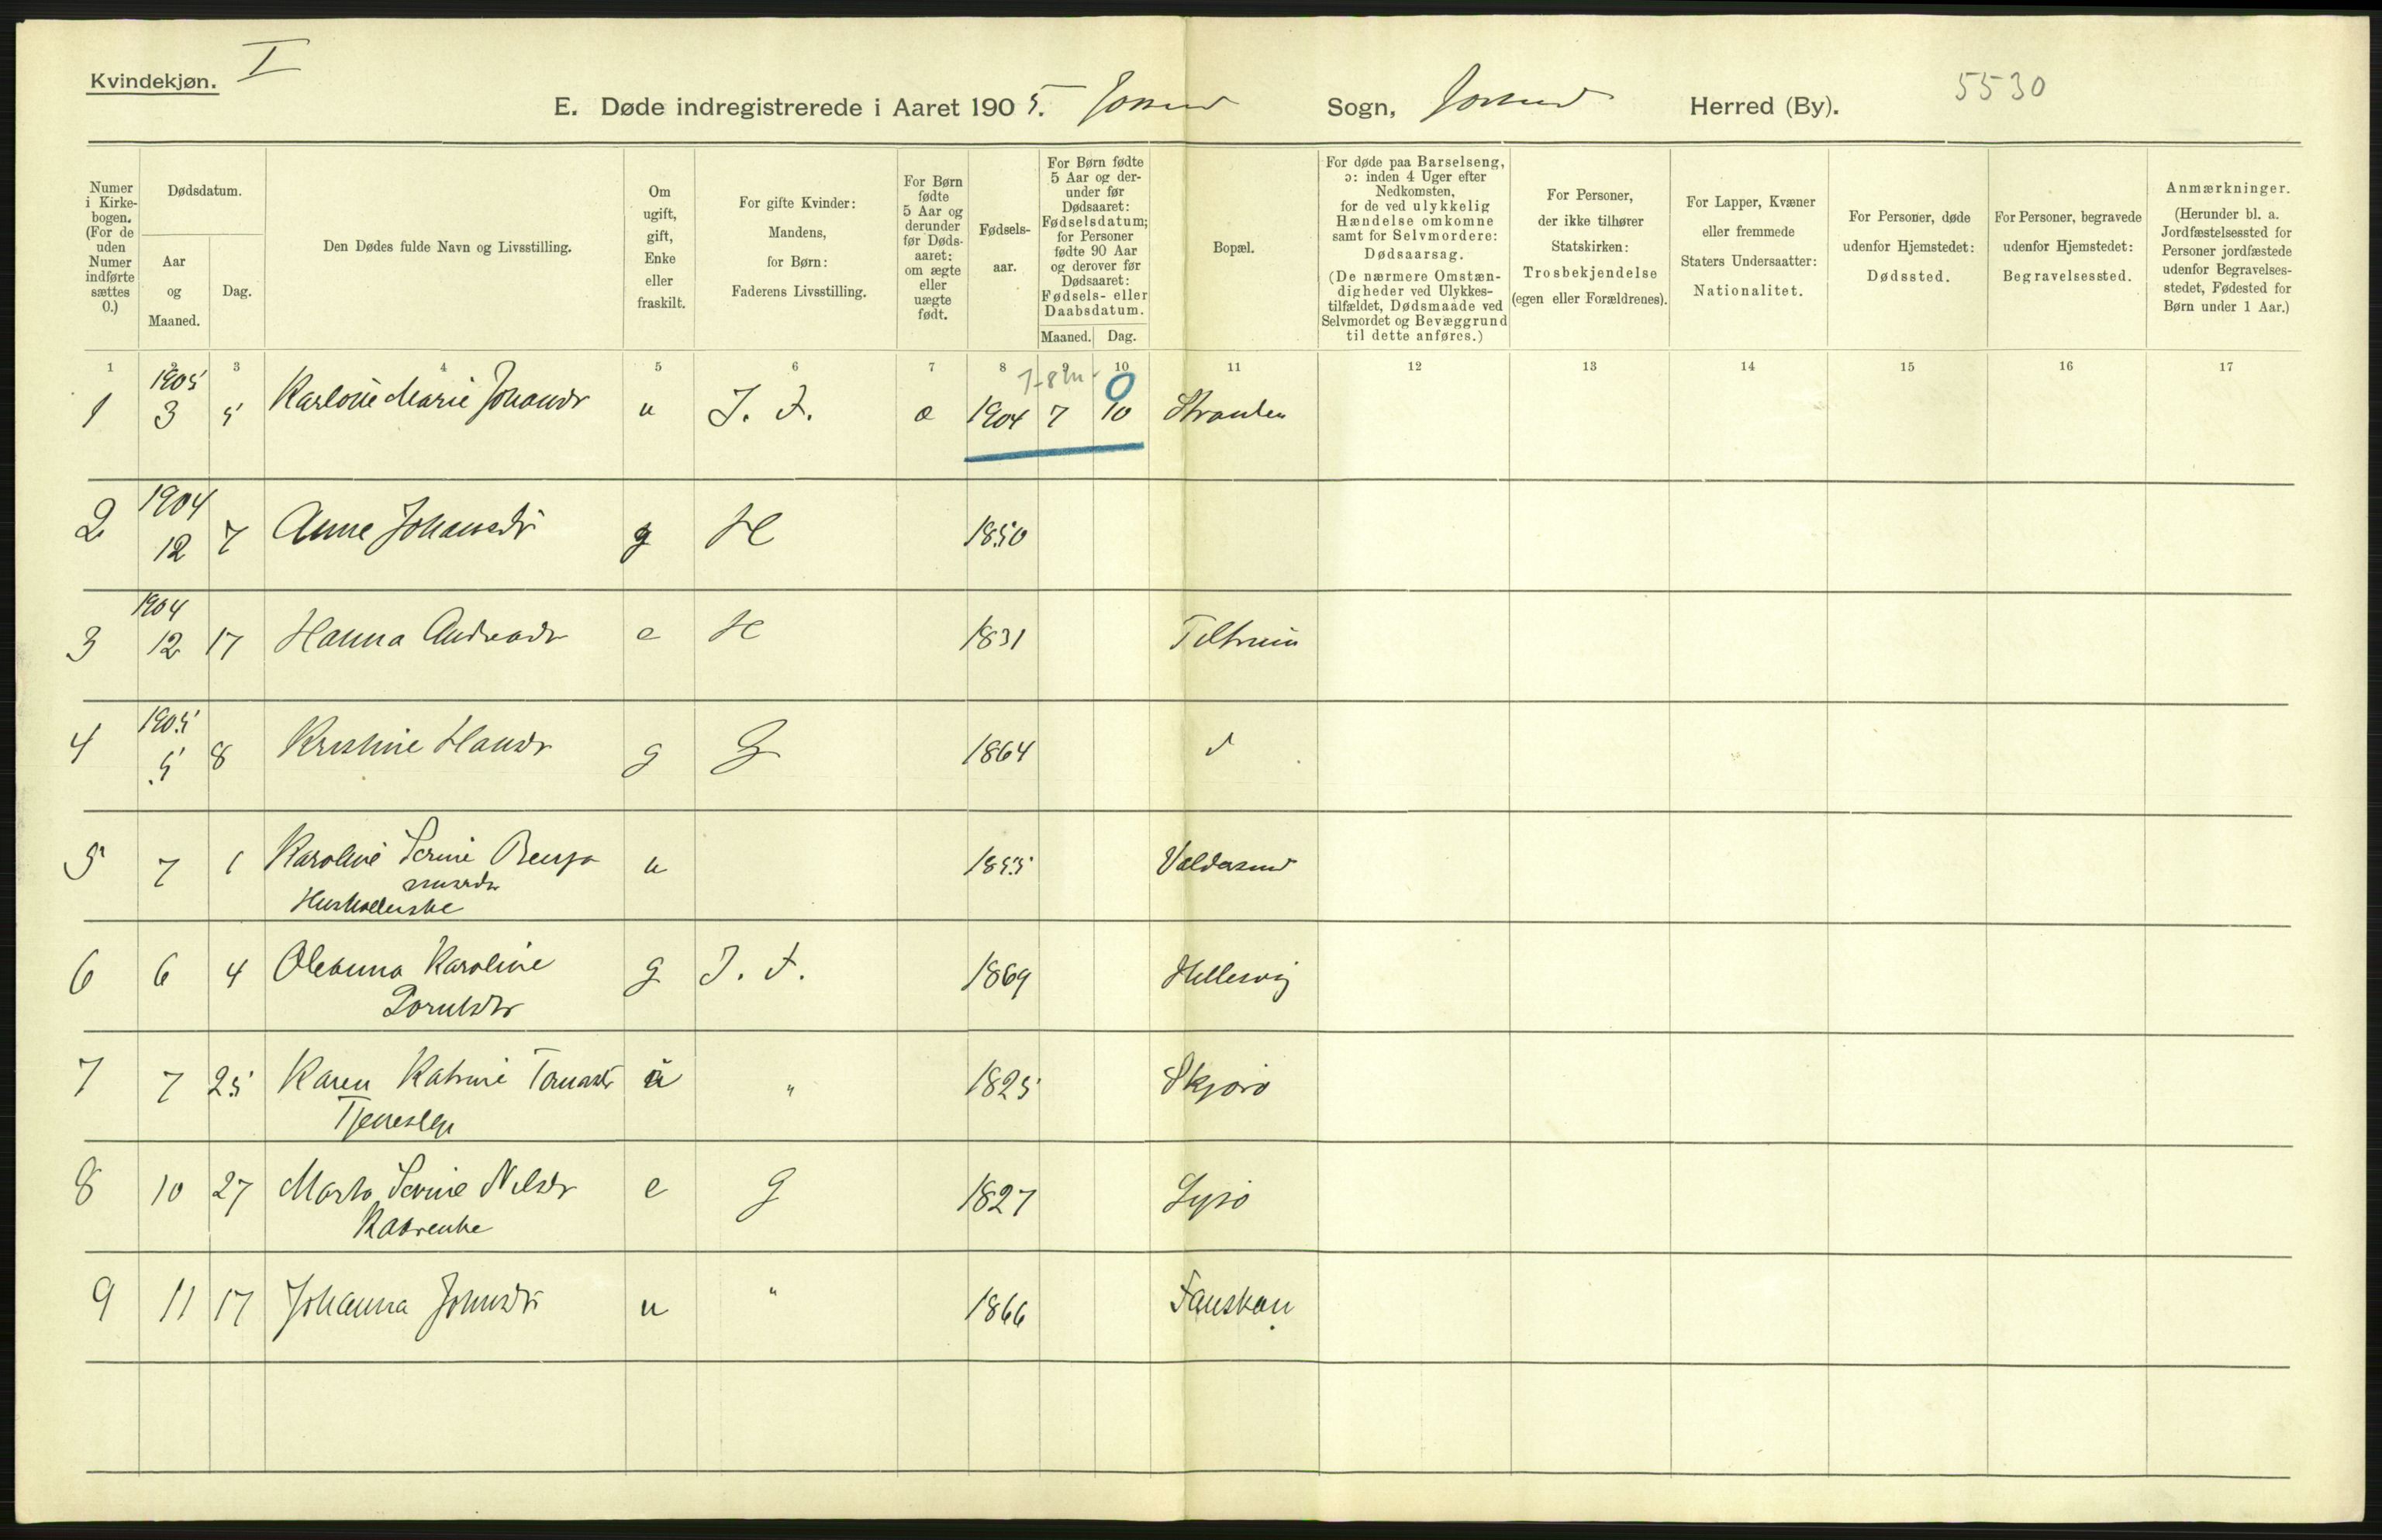 Kvindekjøn. I
E. Døde indregistrerede i Aaret 1905. Jossund Sogn, Jossund Herred (By). 5530
Numer i Kirke-bogen. (For de uden Numer indførte sættes 0.)
Dødsdatum.
Aar og Maaned.
Dag.
Den Dødes fulde Navn og Livsstilling.
Om ugift, gift, Enke eller fraskilt.
For gifte Kvinder: Mandens, for Børn: Faderens Livsstilling.
For Børn fødte 5 Aar og derunder før Døds-aaret: om ægte eller uægte født.
Fødsels-aar.
For Børn fødte 5 Aar og der-under før Dødsaaret: Fødselsdatum; for Personer fødte 90 Aar og derover før Dødsaaret: Fødsels- eller Daabsdatum.
Maaned. Dag.
Bopæl.
For døde paa Barselseng, ɔ: inden 4 Uger efter Nedkomsten, for de ved ulykkelig Hændelse omkomne samt for Selvmordere: Dødsaarsag. (De nærmere Omstæn-digheder ved Ulykkes-tilfældet, Dødsmaade ved Selvmordet og Bevæggrund til dette anføres.)
For Personer, der ikke tilhører Statskirken: Trosbekjendelse (egen eller Forældrenes).
For Lapper, Kvæner eller fremmede Staters Undersaatter: Nationalitet.
For Personer, døde udenfor Hjemstedet: Dødssted.
For Personer, begravede udenfor Hjemstedet: Begravelsessted.
Anmærkninger. (Herunder bl. a. Jordfæstelsessted for Personer jordfæstede udenfor Begravelses-stedet, Fødested for Børn under 1 Aar.)
1 2 3 4 5 6 7 8 9 10 11 12 13 14 15 16 17
7-8 m 0
1905
1 3 5 Karloine Marie Johansdr u J. F. æ 1904 7 10 Stranden
1904
2 12 7 Anne Johansdr g H 1850
1904
3 12 17 Hanna Andreasdr e H 1831 Tiltrem
1905
4 5 8 Kristine Hansdr g G 1864
5 7 1 Karoline Serine Benja u 1855 Valdersund
minsdr
Husholderske
6 6 4 Oleanna Karoline g J. F. 1869 Hellesvig
Pornksdr
7 7 25 Karen Katrine Tomasdr u " 1825 Skjørø
Tjenestepi
8 10 27 Marta Serine Nilsdr e G 1827 Lysø
Kaarenke
9 11 17 Johanna Johnsdr u " 1866 Fauskan